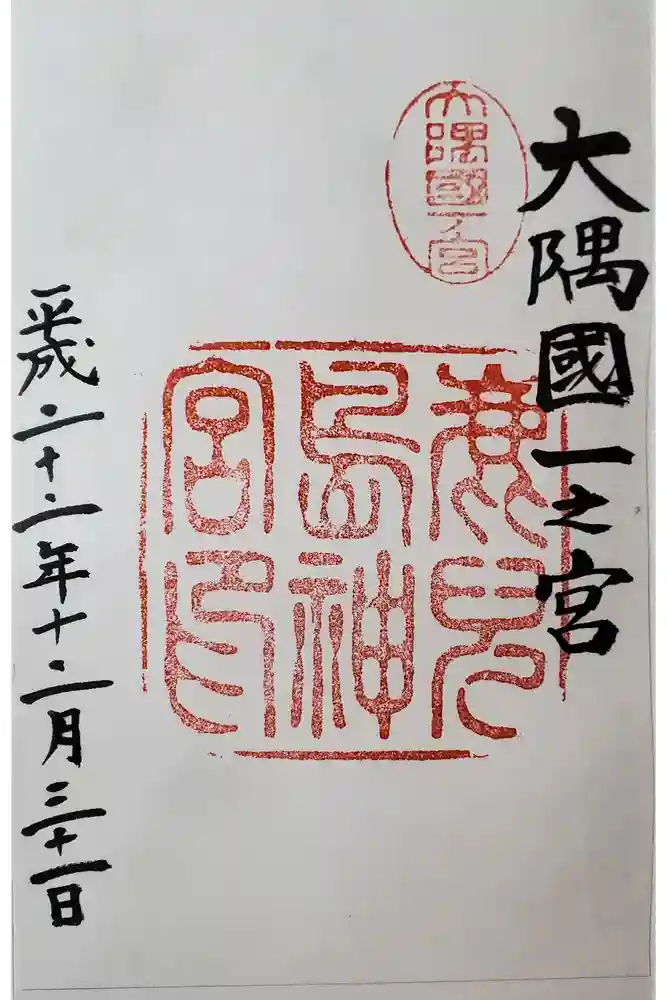 大隅國一之宮
大隅國一ノ宮
鹿兒
島神
宮印
平成二十二年十二月三十一日